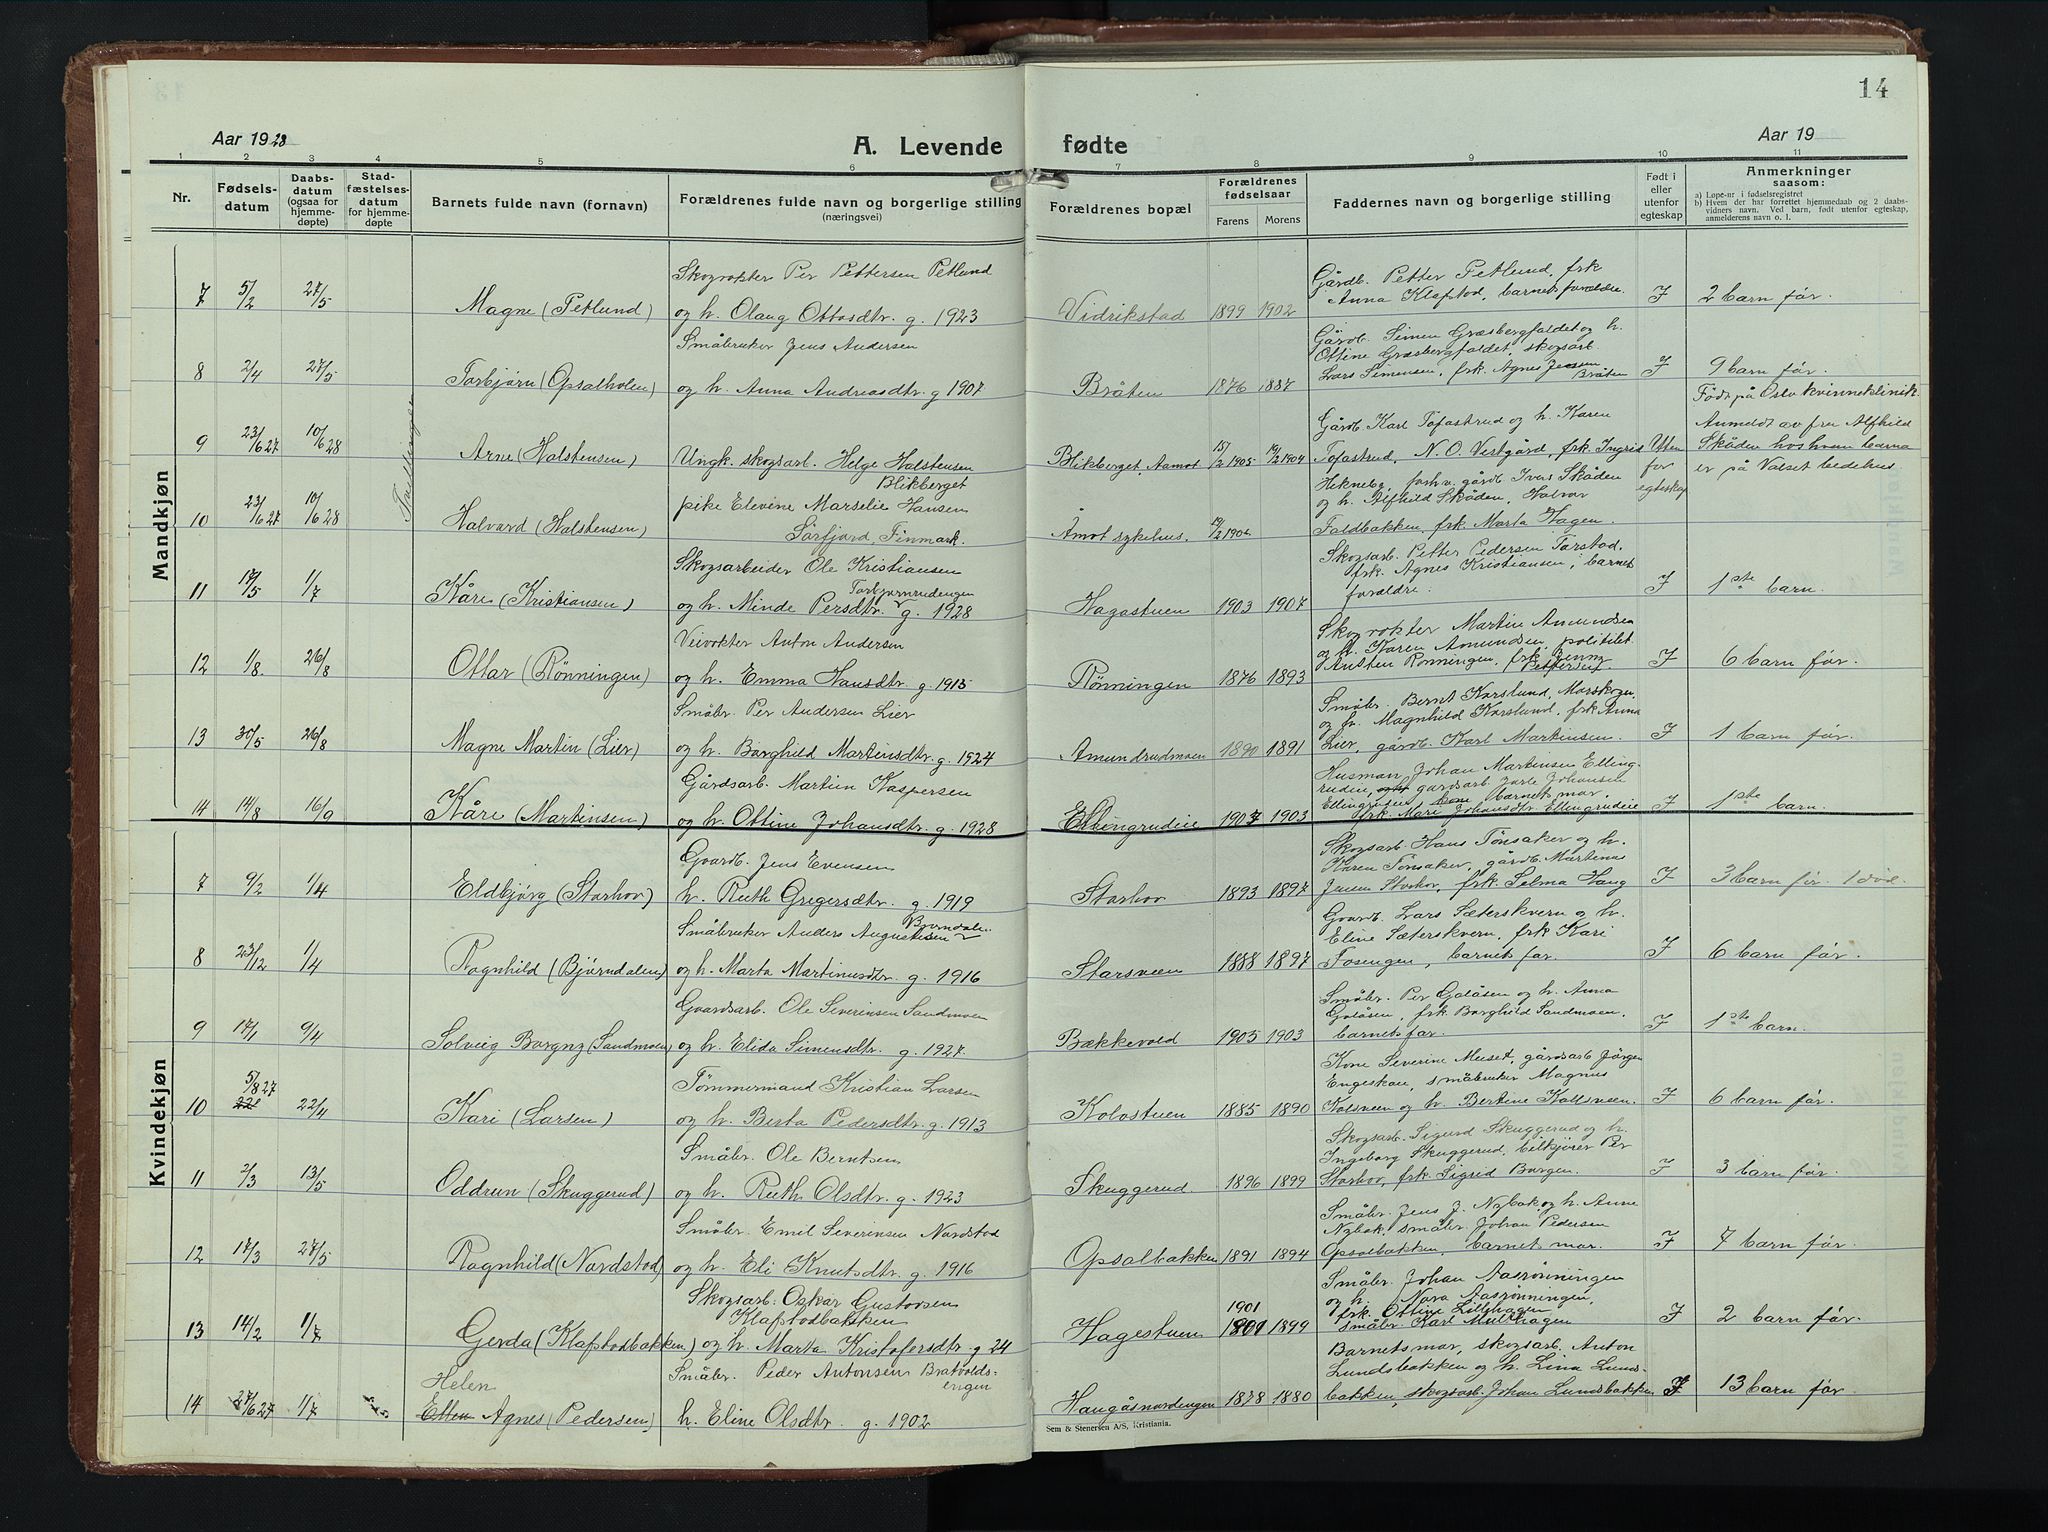 14
Aar 1928
A. Levende fødte
Aar 19
1 2 3 4 5 6 7 8 9 10 11
Nr.
Fødsels-
datum
Daabs-
datum
(ogsaa for
hjemme-
døpte)
Stad-
fæstelses-
datum
for hjemme-
døpte
Barnets fulde navn (fornavn)
Forældrenes fulde navn og borgerlige stilling
(næringsvei)
Forældrenes bopæl
Forældrenes
fødselsaar
Farens Morens
Faddernes navn og borgerlige stilling
Født i
eller
utenfor
egteskap
Anmerkninger
saasom:
a) Løpe-nr. i fødselsregistret
b) Hvem der har forrettet hjemmedaab og 2 daabs-
vidners navn. Ved barn, født utenfor egteskap,
anmelderens navn o. l.
Mandkjøn
7 5/2 27/5 Magne (Petlund)
Skogvokter Per Pettersen Petlund
og h. Olaug Ottosdtr. g. 1923
Vidrikstad 1899 1902
Gårdb. Petter Petlund, frk
Anna Klafstad, barnets forældre.
I 2 barn før.
8 2/4 27/5 Torbjørn (Opsalholen)
Småbruker Jens Andersen
og h. Anna Andreasdtr. g 1907
Bråten 1876 1887
Gårdb. Simen Græsbergfaldet og h.
Ottine Græsbergfaldet, skogsarb.
Lars Simensen, frk. Agnes Jensen
Bråten
I 9 barn før.
Tvillinger
9 23/6 27 10/6 28 Arne (Halstensen)
Ungk. skogsarb. Helge Halstensen
Blikberget
Blikberget, Aamot 15/2 1905 19/2 1904
Gårdb Karl Tofastrud og h. Karen
Tofastrud, N. O. Vestgård, frk Ingrid
Hekneby, forhv. gårdb Iver Skåden
og h. Alfhild Skåden, Halvor
Utenfor
egteskap
Født på Oslo kvinneklinik.
Anmeldt av fru Alfhild
Skåden hos hvem barna
er på Valset bedehus.
10 23/6 27 10/6 28 Halvard (Halstensen)
pike Elevine Marselie Hansen
Sørfjord, Finmark.
Åmot sykehus. 19/2 1904
Faldbakken, frk. Marta Hagen.
11 17/5 1/7 Kåre (Kristiansen)
Skogsarbeider Ole Kristiansen
Torbjørnrudengen
og h. Minde Persdtr. g. 1928
Hagastuen 1903 1907
Skogsarb. Petter Pedersen Torstad,
frk. Agnes Kristiansen, barnets
forældre.
I 1ste barn.
12 1/8 26/8 Ottar (Rønningen)
Veivokter Anton Andersen
og h. Emma Hansdtr. g 1915
Rønningen 1876 1893
Skogvokter Martin Amundsen
og h. Karen Amundsen, politibet
Austen Rønningen, frk Jenny
Pettersen
I 6 barn før.
13 30/5 26/8 Magne Martin (Lier)
Småbr. Per Andersen Lier
og h. Borghild Martinsdtr. g. 1924
Amundrudmoen 1890 1891
Småbr. Bernt Karslund, Morskogn,
og h. Magnhild Karslund, frk Anna
Lier, gårdb. Karl Martinsen.
I 1 barn før.
14 14/8 16/9 Kåre (Martinsen)
Gårdsarb. Martin Kaspersen
og h. Ottine Johansdtr. g. 1928
Ellingrudeie 1907 1903
Husman Johan Martinsen Elling-
ruden, gardsarb Jarle Johansen
Ellingruden, barnets mor,
frk. Mari Johansdtr. Ellingrudeie
I 1ste barn.
Kvindekjøn
7 9/2 1/4 Eldbjørg (Storhov)
Gaardb. Jens Evensen
h. Ruth Gregersdtr. g. 1919
Storhov 1893 1897
Skogsarb. Hans Tønsaker og h.
Karen Tønsaker, gårdb. Martinus
Jensen Storhov, frk. Selma Haug
I 3 barn før. 1 død.
8 23/12 1/4 Ragnhild (Bjørndalen)
Småbruker Anders Augustinsen
Bjørndalen
og h. Marta Martinusdtr. g. 1916
Storsveen 1888 1897
Gaardb. Lars Sæterskvern og h.
Eline Sæterskvern, frk Kari
Tosengen, barnets far.
I 6 barn før.
9 17/1 9/4 Solveig Borgny (Sandmoen)
Gaardsarb. Ole Severinsen Sandmoen
og h. Elida Simensdtr. g. 1927.
Bækkevold 1905 1903
Småbr. Per Golåsen og h. Anna
Golåsen, frk Borghild Sandmoen,
barnets far.
I 1ste barn.
10 5/8 27 22/4 Kari (Larsen)
Tømmermand Kristian Larsen
og h. Berta Pedersdtr. g. 1913
Kolostuen 1885 1890
Kone Severine Muset, gårdsarb Jørgen
Engeskau, småbruker Magnus
Kolsveen og h. Bertine Kolsveen.
I 6 barn før.
11 2/3 13/5 Oddrun (Skuggerud)
Småbr. Ole Berntsen
og h. Ruth Olsdtr. g. 1923
Skuggerud. 1896 1899
Skogsarb. Sigurd Skuggerud og h.
Ingeborg Skuggerud, bilkjører Per
Storhov, frk Sigrid Borgen.
I 3 barn før.
12 17/3 27/5 Ragnhild (Nordstad)
Småbr. Emil Severinsen Nordstad
og h. Eli Knutsdtr. g. 1916
Opsalbakken 1891 1894
Småbr. Jens J. Nybak og h. Anne
Nybak, småbr. Johan Pedersen
Opsalbakken, barnets mor.
I 7 barn før.
13 14/2 1/7 Gerda (Klafstadbakken)
Skogsarb. Oskar Gustavsen
Klafstadbakken
og h. Marta Kristofersdtr. g 24
Hagestuen 1901 1899
Småbr. Johan Aasrønningen
og h. Nora Aasrønningen,
frk. Ottine Lillehagen,
småbr Karl Mellhagen
I 2 barn før.
14 27/6 27 1/7 Helen
Ellen Agnes (Pedersen)
Småbr. Peder Antonsen Bratvolds-
engen
h. Eline Olsdtr. g. 1902
Haugåsnordengen 1878 1880
Barnets mor, skogsarb. Anton
Lundsbakken og h. Lina Lunds-
bakken, skogsarb. Johan Lundsbakken
I 13 barn før.
Sem & Stenersen A/S, Kristiania.